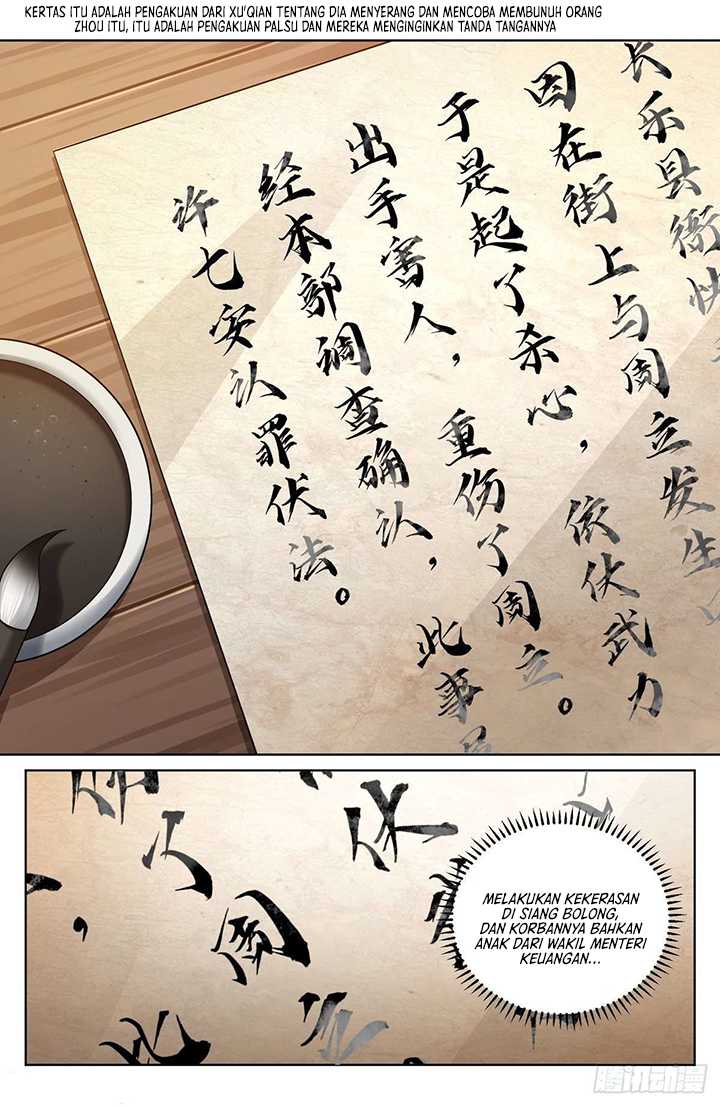 KERTAS ITU ADALAH PENGAKUAN DARI XU'QIAN TENTANG DIA MENYERANG DAN MENCOBA MEMBUNUH ORANG
ZHOU ITU, ITU ADALAH PENGAKUAN PALSU DAN MEREKA MENGINGINKAN TANDA TANGANNYA
长乐县衙快
因在街上与周立发生
于是起了杀心，依伏武力
出手害人，重伤了周立。
经本部调查确认，此事
许七安认罪伏法。
MELAKUKAN KEKERASAN
DI SIANG BOLONG,
DAN KORBANNYA BAHKAN
ANAK DARI WAKIL MENTERI
KEUANGAN...
腾讯动漫